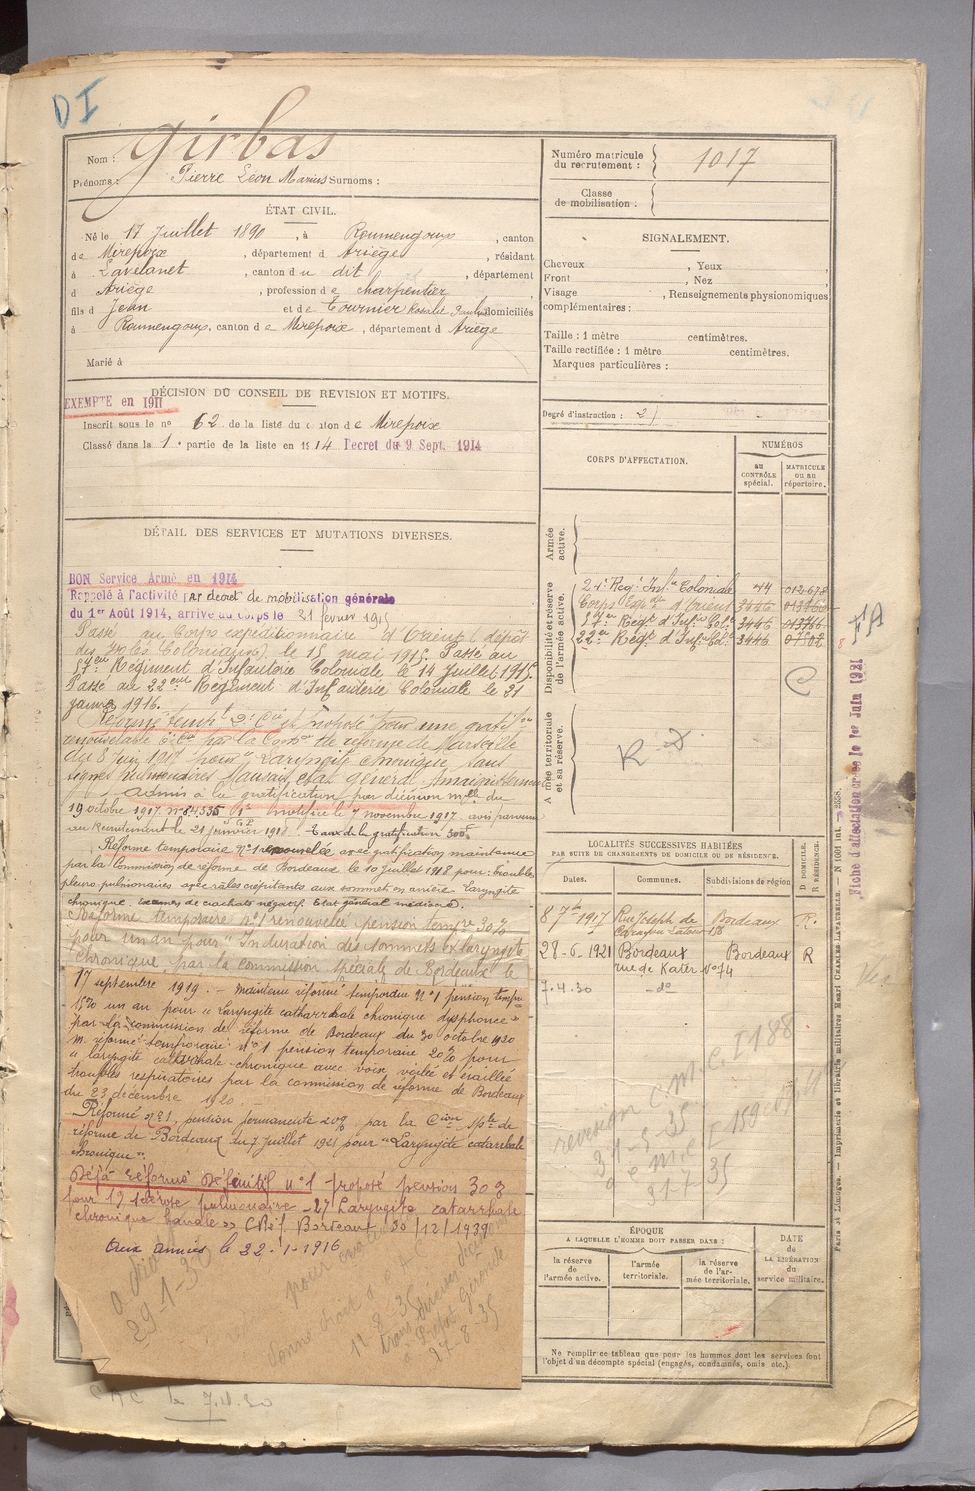 DI
Nom : Girbas
Prénoms : Pierre Léon Marius Surnoms :
Numéro matricule du recrutement : 1017
Classe de mobilisation :
ÉTAT CIVIL.
Né le 17 Juillet 1890, à Roumengoux, canton
de Mirepoix, département d Ariège, résidant
à Lavelanet, canton du dit, département
d Ariège, profession de charpentier
fils d Jean et de Tournier Rosalie Paule domiciliés
à Roumengoux, canton de Mirepoix, département d Ariège
Marié à
SIGNALEMENT.
Cheveux , Yeux ,
Front , Nez ,
Visage , Renseignements physionomiques
complémentaires :
Taille : 1 mètre centimètres.
Taille rectifiée : 1 mètre centimètres.
Marques particulières :
Degré d'instruction : 2
DÉCISION DU CONSEIL DE REVISION ET MOTIFS.
EXEMPTE en 1911
Inscrit sous le no 62 de la liste du canton de Mirepoix
Classé dans la 1e partie de la liste en 1914 Decret du 9 Sept. 1914
CORPS D'AFFECTATION.
NUMÉROS
au CONTRÔLE spécial.
MATRICULE ou au répertoire.
Armée active.
Disponibilité et réserve de l'armée active.
24e Regt Infie Coloniale 44 012678
Corps Expre d'Orient 3446 013766
57eme Regt d'Infie Cole 3446 013766
22eme Regt d'Infie Cole 3446 07502
C
Armée territoriale et sa réserve.
R.D.
DÉTAIL DES SERVICES ET MUTATIONS DIVERSES.
BON Service Armé en 1914
Rappelé à l'activité par decret de mobilisation générale
du 1er Août 1914, arrivé au corps le 21 février 1915
Passé au Corps expéditionnaire d'Orient (dépôt
des Isolés Coloniaux) le 15 mai 1915. Passé au
57eme Régiment d'Infanterie Coloniale le 14 Juillet 1915.
Passé au 22eme Régiment d'Infanterie Coloniale le 21
janvier 1916.
Réformé tempre 2e Cie et proposé pour une gratifon
renouvelable par la Comon de réforme de Marseille
du 8 juin 1917 pour Laryngite chronique, sans
signes pulmonaires Mauvais état général Amaigrissement
Admis à la gratification par décision mlle du
19 octobre 1917 notifiée le 7 novembre 1917 avis parvenu
au Recrutement le 21 janvier 1918. Taux de la gratification 300f
Réforme temporaire no 1 renouvelée avec gratification maintenue
par la Commission de réforme de Bordeaux le 10 Juillet 1918 pour: troubles
pleuro pulmonaires avec râles crépitants aux sommets en arrière Laryngite
chronique. examens de crachats négatif. Etat général médiocre.
Réforme temporaire no 1 renouvelée pension tempre 30%
pour un an pour "Induration des sommets & laryngite
chronique" par la commission spéciale de Bordeaux le
17 septembre 1919. - Maintenu réformé temporaire No 1 pension tempre
15% un an pour "Laryngite catarrhale chronique dysphonie"
par la commission de réforme de Bordeaux du 30 octobre 1920
M. réformé temporaire no 1 pension temporaire 20% pour
"laryngite catarrhale chronique avec voix voilée et éraillée
troubles respiratoires par la commission de réforme de Bordeaux
du 23 décembre 1920.
Réformé no 1, pension permanente 20% par la Cion Sple de
réforme de Bordeaux du 7 juillet 1921 pour "Laryngite catarrhale
chronique".
Déjà réformé Définitif no 1 proposé pension 30%
pour 1o sclérose pulmonaire - 2o Laryngite catarrhale
chronique C.Réf. Bordeaux 30/12/1939
aux armées le 22-1-1916
29-1-3
12-8-35
Gironde
27-8-35
7.4.30
LOCALITÉS SUCCESSIVES HABITÉES
PAR SUITE DE CHANGEMENTS DE DOMICILE OU DE RÉSIDENCE.
Dates. Communes. Subdivisions de région
D DOMICILE. R RÉSIDENCE.
8 7bre 1917 Rue Joseph de Carayon Latour 158 Bordeaux R.
28-6-1921 Bordeaux rue de Kater No 74 Bordeaux R
7.4.30 - do
revision C.M.C. I 188
31-5-35
31-7-35
ÉPOQUE
A LAQUELLE L'HOMME DOIT PASSER DANS :
la réserve de l'armée active.
l'armée territoriale.
la réserve de l'armée territoriale.
DATE de la LIBÉRATION du service militaire.
Ne remplir ce tableau que pour les hommes dont les services font
l'objet d'un décompte spécial (engagés, condamnés, omis etc.).
FA
Fiche d'affectation créée le 1er Juin 1921
Paris et Limoges. — Imprimerie et librairie militaires Henri CHARLES-LAVAUZELLE. — N 1001 int. 2558.